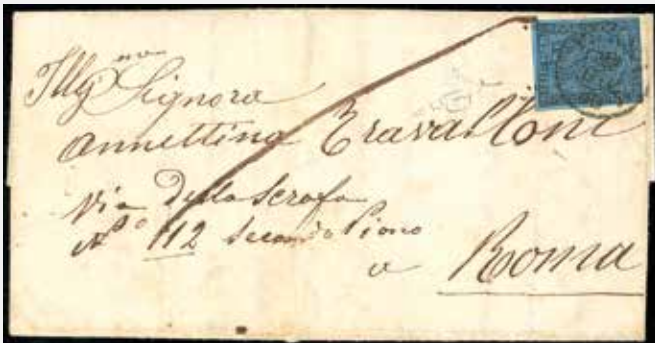 Illma Signora
Annettina Travaglioni
Via Della Scrofa
N° 112 Secondo Piano
a
Roma